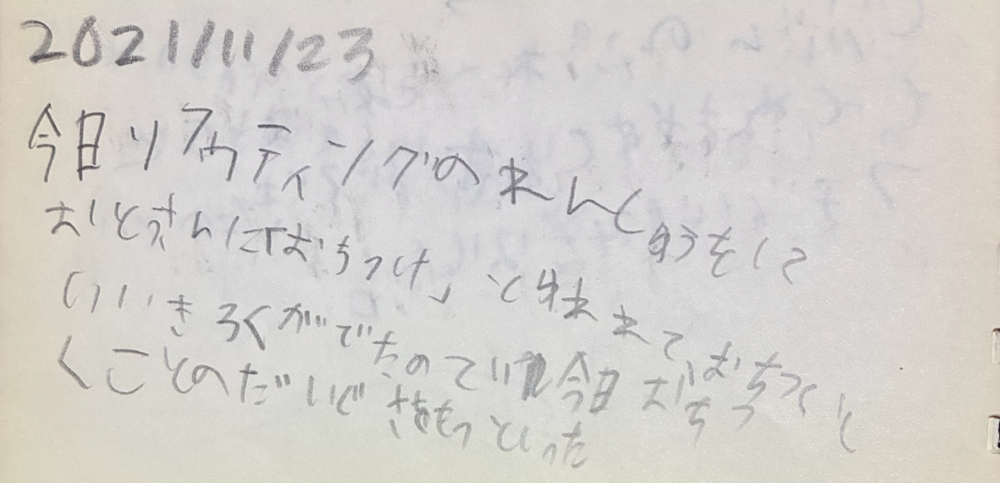 2021/11/23
今日リフウティングのれんしゅうをして
おとうさんに「おちつけ」と
いいきろくがでたので今日おちつ
くことのだいじさをもっとしった